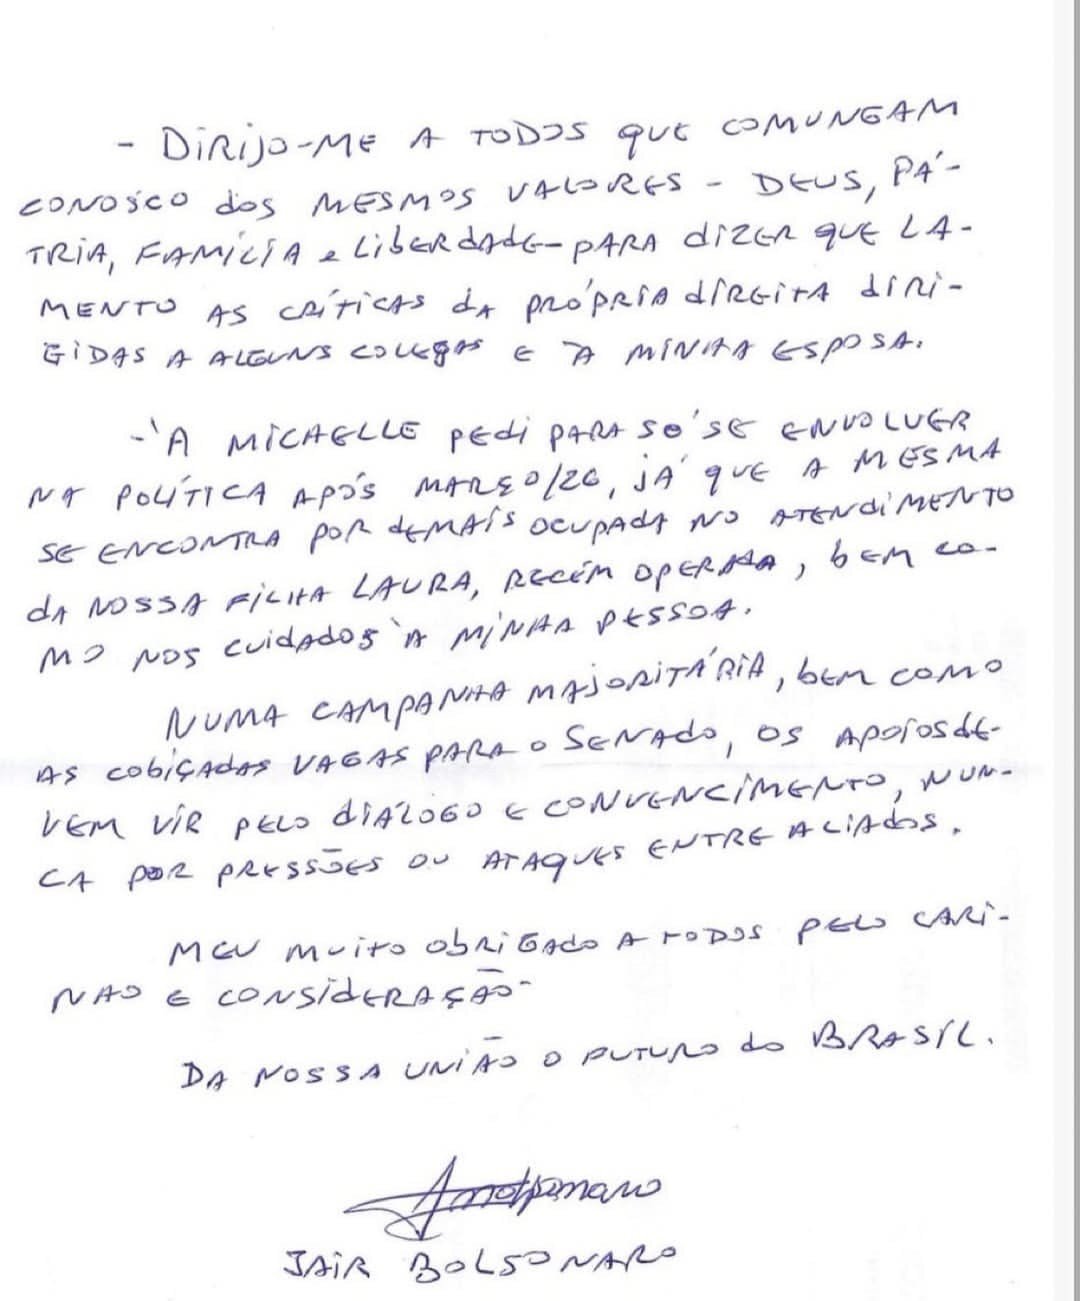 - DIRIJO-ME A TODOS QUE COMUNGAM
CONOSCO DOS MESMOS VALORES - DEUS, PÁ-
TRIA, FAMÍLIA e LIBERDADE - PARA DIZER QUE LA-
MENTO AS CRÍTICAS DA PRÓPRIA DIREITA DIRI-
GIDAS A ALGUNS COLEGAS E À MINHA ESPOSA.
- À MICHELLE PEDI PARA SÓ SE ENVOLVER
NA POLÍTICA APÓS MARÇO/26, JÁ QUE A MESMA
SE ENCONTRA POR DEMAIS OCUPADA NO ATENDIMENTO
DA NOSSA FILHA LAURA, RECÉM OPERADA, BEM CO-
MO NOS CUIDADOS À MINHA PESSOA.
NUMA CAMPANHA MAJORITÁRIA, BEM COMO
AS COBIÇADAS VAGAS PARA O SENADO, OS APOIOS DE-
VEM VIR PELO DIÁLOGO E CONVENCIMENTO, NUN-
CA POR PRESSÕES OU ATAQUES ENTRE ALIADOS.
MEU MUITO OBRIGADO A TODOS PELO CARI-
NHO E CONSIDERAÇÃO-
DA NOSSA UNIÃO O FUTURO DO BRASIL.
JAIR BOLSONARO